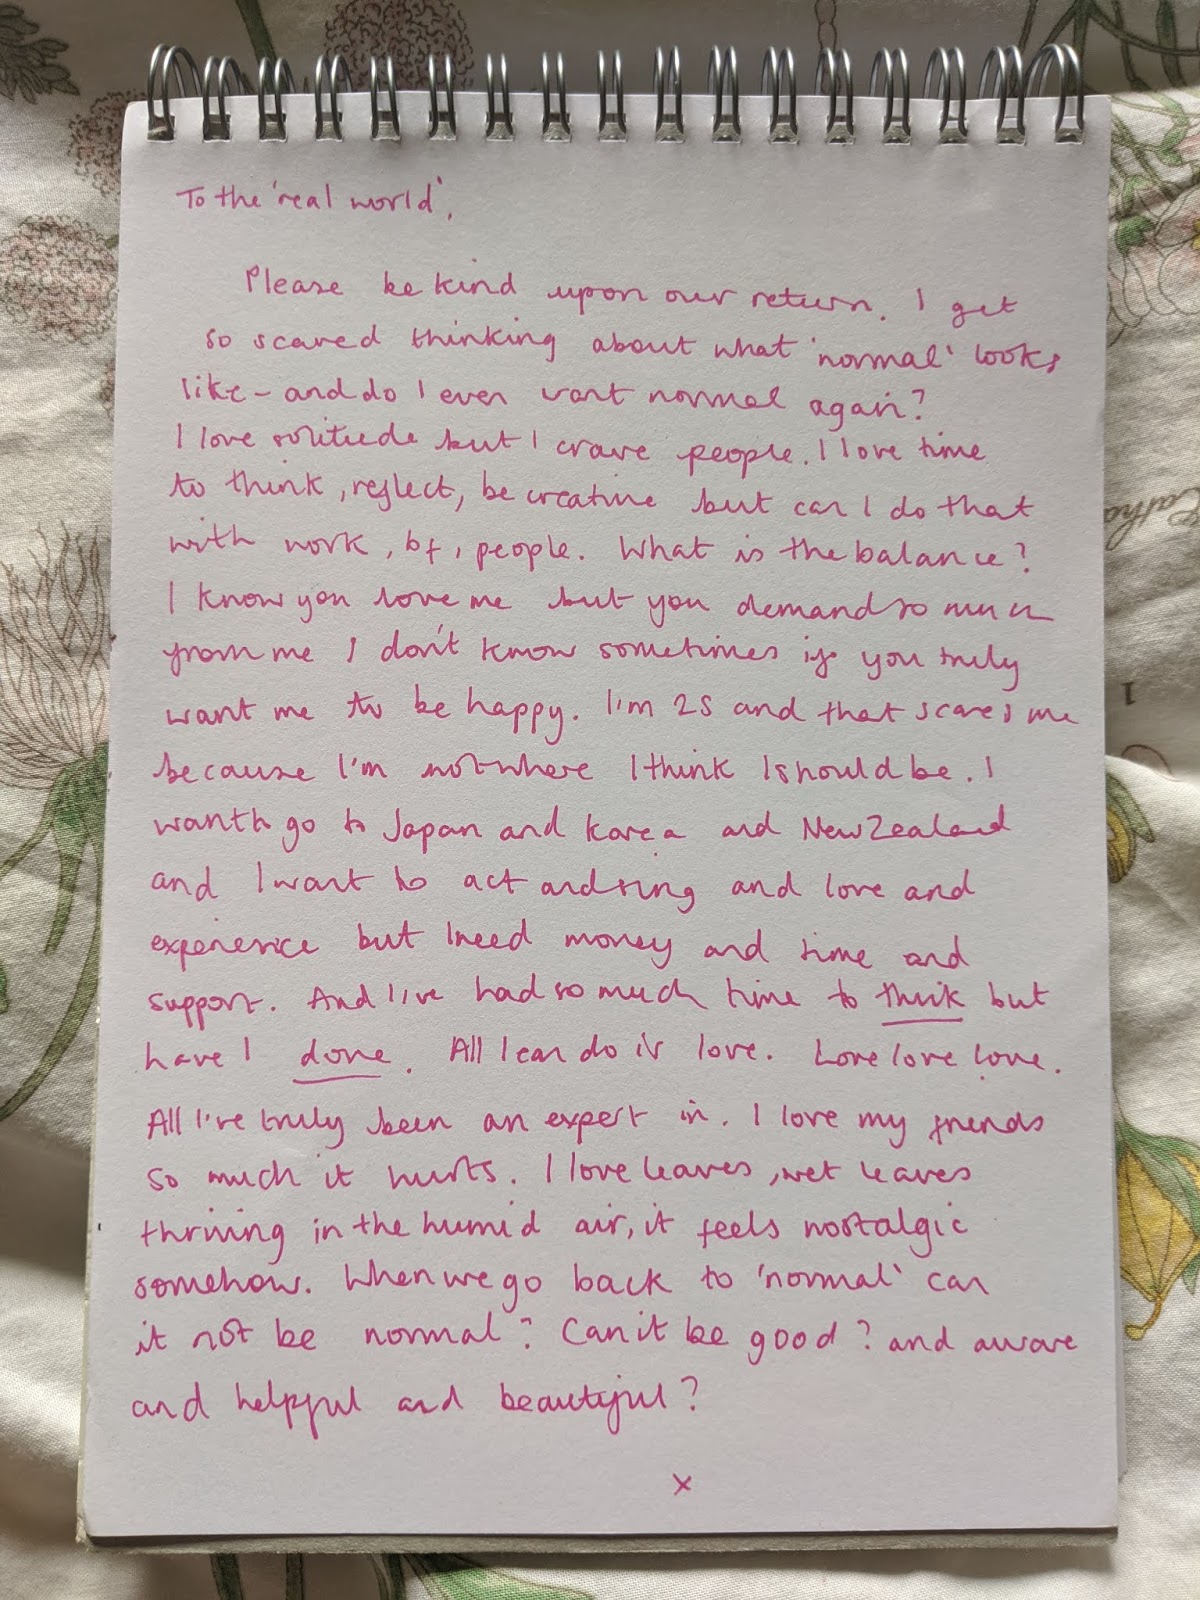 To the 'real world',
Please be kind upon our return. I get
so scared thinking about what 'normal' looks
like - and do I even want normal again?
I love solitude but I crave people. I love time
to think, reflect, be creative but can I do that
with work, bf, people. What is the balance?
I know you love me but you demand so much
from me I don't know sometimes if you truly
want me to be happy. I'm 25 and that scares me
because I'm not where I think I should be. I
want to go to Japan and Korea and New Zealand
and I want to act and sing and love and
experience but I need money and time and
support. And I've had so much time to think but
have I done. All I can do is love. Love love love.
All I've truly been an expert in. I love my friends
so much it hurts. I love leaves, wet leaves
thriving in the humid air, it feels nostalgic
somehow. When we go back to 'normal' can
it not be normal? Can it be good? and aware
and helpful and beautiful?
x
1